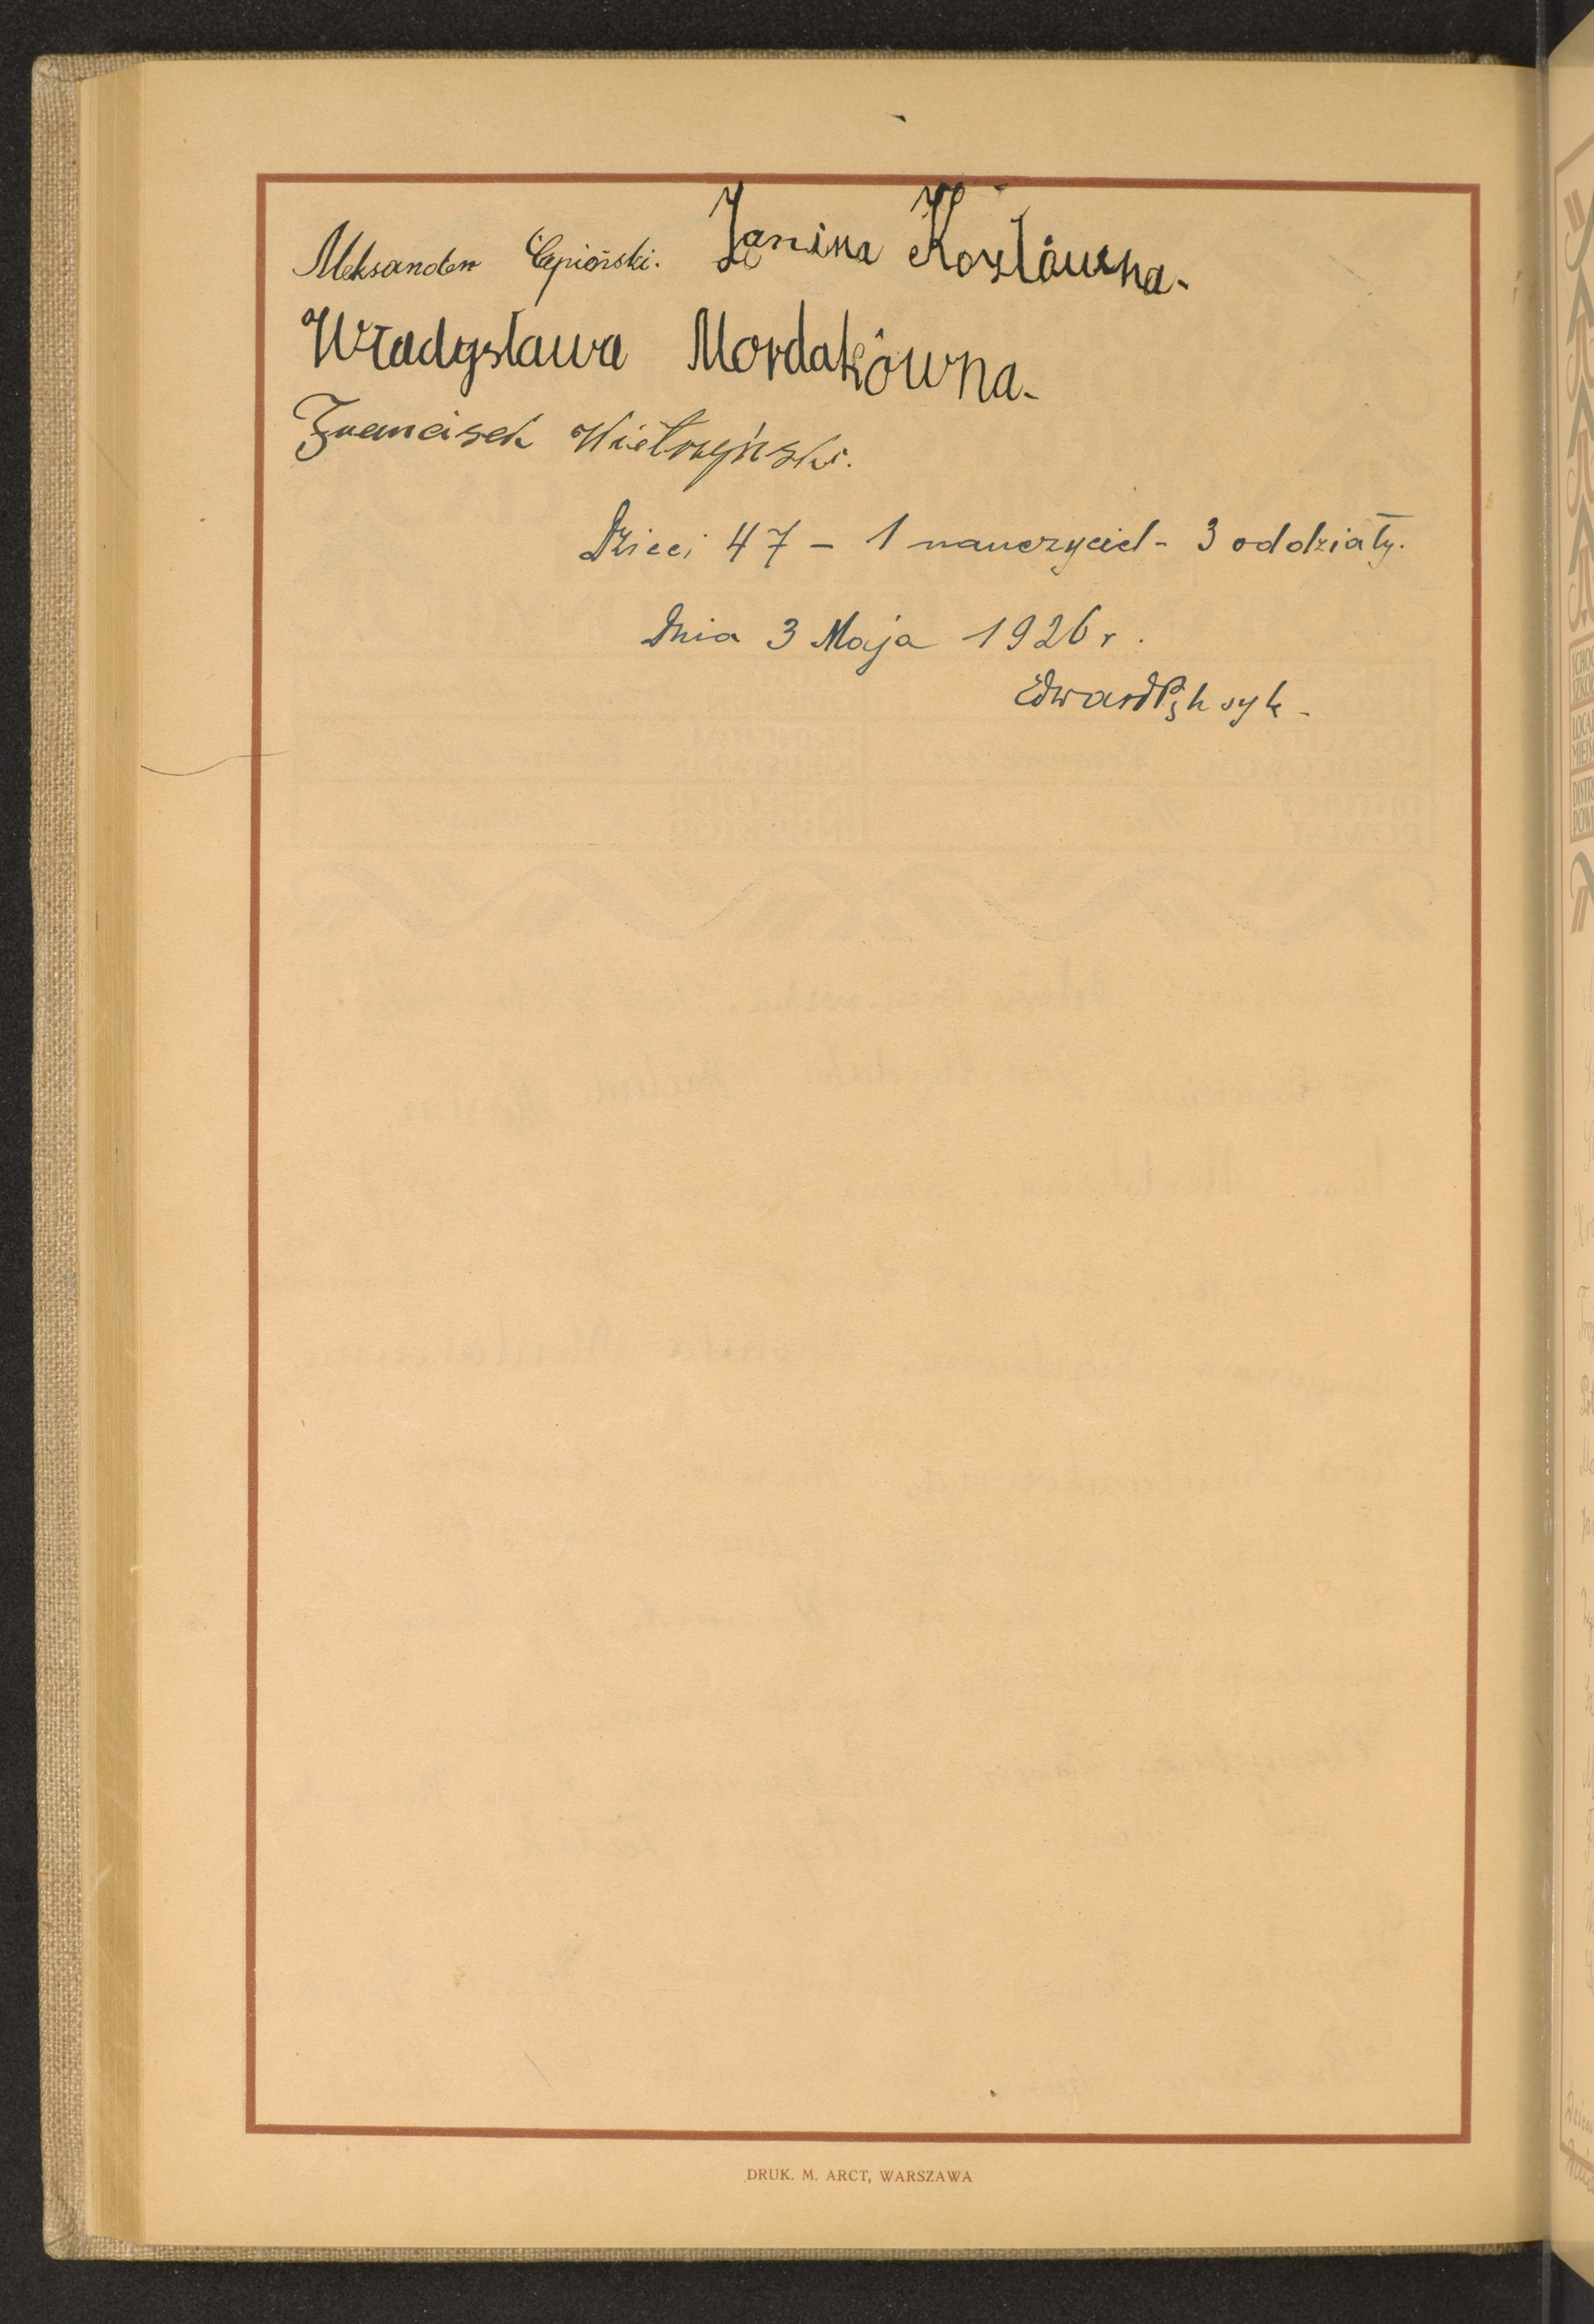 Aleksander Cepiński. Janina Kozlówna.
Władysława Mordakówna.
Francisek Wietrzyński.
Dzieci 47 – 1 nauczyciel – 3 oddziały.
Dnia 3 Maja 1926 r.
Edward
DRUK. M. ARCT, WARSZAWA